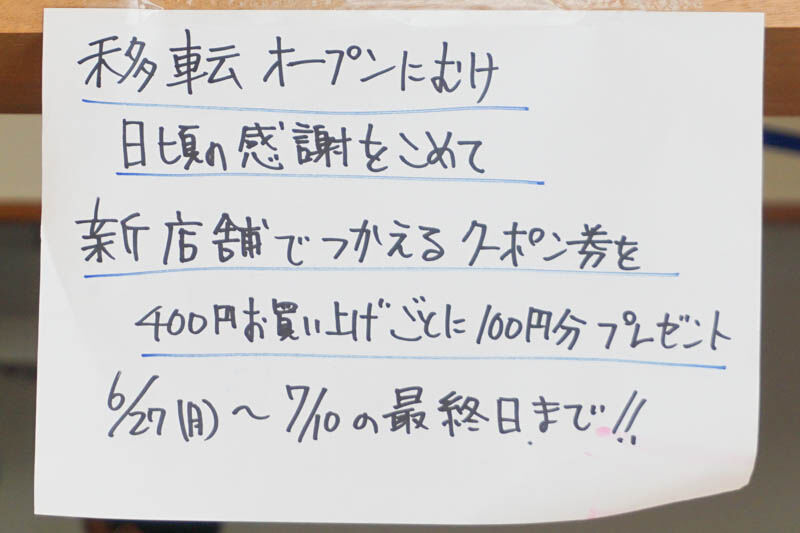 移転オープンにむけ
日頃の感謝をこめて
新店舗でつかえるクーポン券を
400円お買い上げごとに100円分プレゼント
6/27(月)～7/10の最終日まで!!